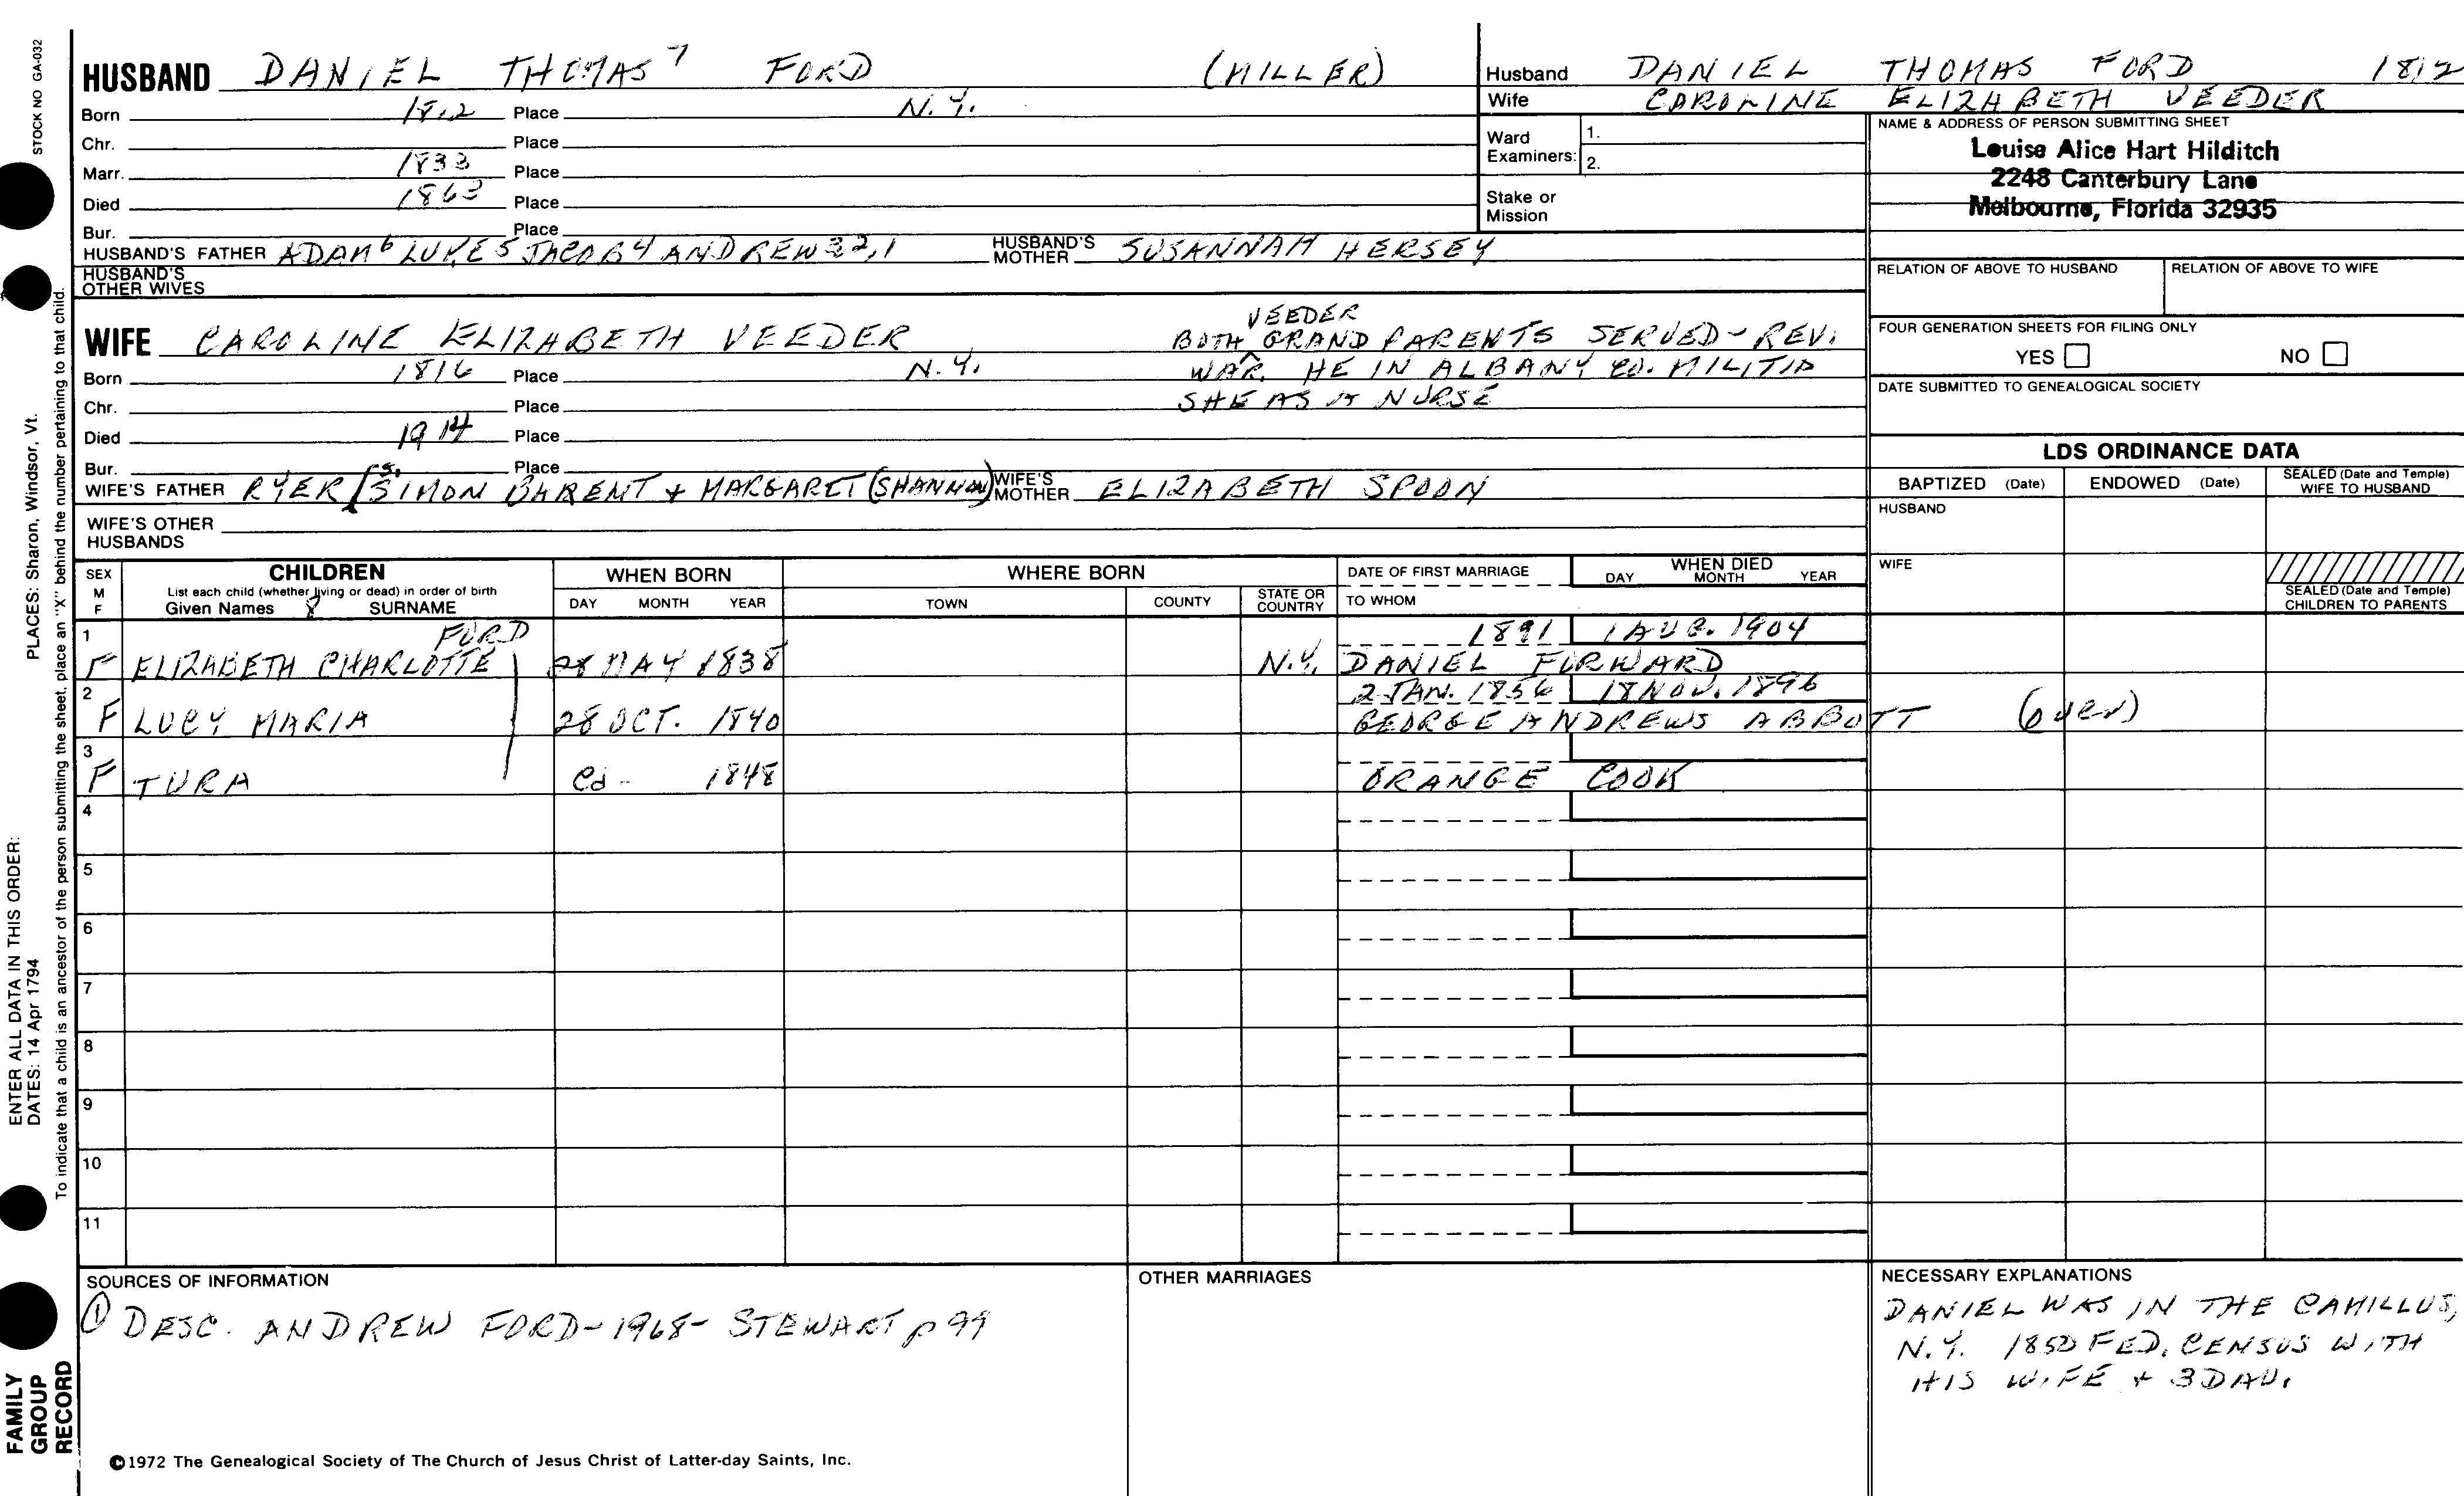 STOCK NO GA-032
HUSBAND DANIEL THOMAS 7 FORD (MILLER)
Born 1812 Place N.Y.
Chr. Place
Marr. 1833 Place
Died 1863 Place
Bur. Place
HUSBAND'S FATHER ADAM 6 LUKE 5 JACOB 4 ANDREW 3 2, 1 HUSBAND'S MOTHER SUSANNAH HERSEY
HUSBAND'S OTHER WIVES
WIFE CAROLINE ELIZABETH VEEDER
VEEDER
BOTH ^ GRAND PARENTS SERVED - REV.
WAR. HE IN ALBANY CO. MILITIA
SHE AS A NURSE
Born 1816 Place N.Y.
Chr. Place
Died 1914 Place
Bur. Place
WIFE'S FATHER RYER (S. SIMON BARENT + MARGARET (SHANNON) WIFE'S MOTHER ELIZABETH SPOON
WIFE'S OTHER HUSBANDS
Husband DANIEL THOMAS FORD 1812
Wife CAROLINE ELIZABETH VEEDER
Ward Examiners: 1.
2.
Stake or Mission
NAME & ADDRESS OF PERSON SUBMITTING SHEET
Louise Alice Hart Hilditch
2248 Canterbury Lane
Melbourne, Florida 32935
RELATION OF ABOVE TO HUSBAND RELATION OF ABOVE TO WIFE
FOUR GENERATION SHEETS FOR FILING ONLY
YES NO
DATE SUBMITTED TO GENEALOGICAL SOCIETY
LDS ORDINANCE DATA
BAPTIZED (Date) ENDOWED (Date) SEALED (Date and Temple) WIFE TO HUSBAND
HUSBAND
WIFE
SEALED (Date and Temple) CHILDREN TO PARENTS
SEX M F
CHILDREN
List each child (whether living or dead) in order of birth
Given Names SURNAME
WHEN BORN
DAY MONTH YEAR
WHERE BORN
TOWN COUNTY STATE OR COUNTRY
DATE OF FIRST MARRIAGE
TO WHOM
WHEN DIED
DAY MONTH YEAR
1 FORD 1891 1 AUG. 1904
F ELIZABETH CHARLOTTE 28 MAY 1838 N.Y. DANIEL FORWARD
2 2 JAN. 1856 18 NOV. 1896
F LUCY MARIA 28 OCT. 1840 GEORGE ANDREWS ABBOTT (over)
3
F TURA Ca - 1848 ORANGE COOK
4
5
6
7
8
9
10
11
SOURCES OF INFORMATION
① DESC. ANDREW FORD - 1968 - STEWART p 99
OTHER MARRIAGES
NECESSARY EXPLANATIONS
DANIEL WAS IN THE CAMILLUS,
N.Y. 1850 FED. CENSUS WITH
HIS WIFE + 3 DAU.
©1972 The Genealogical Society of The Church of Jesus Christ of Latter-day Saints, Inc.
FAMILY GROUP RECORD
ENTER ALL DATA IN THIS ORDER:
DATES: 14 Apr 1794
PLACES: Sharon, Windsor, Vt.
To indicate that a child is an ancestor of the person submitting the sheet, place an "X" behind the number pertaining to that child.